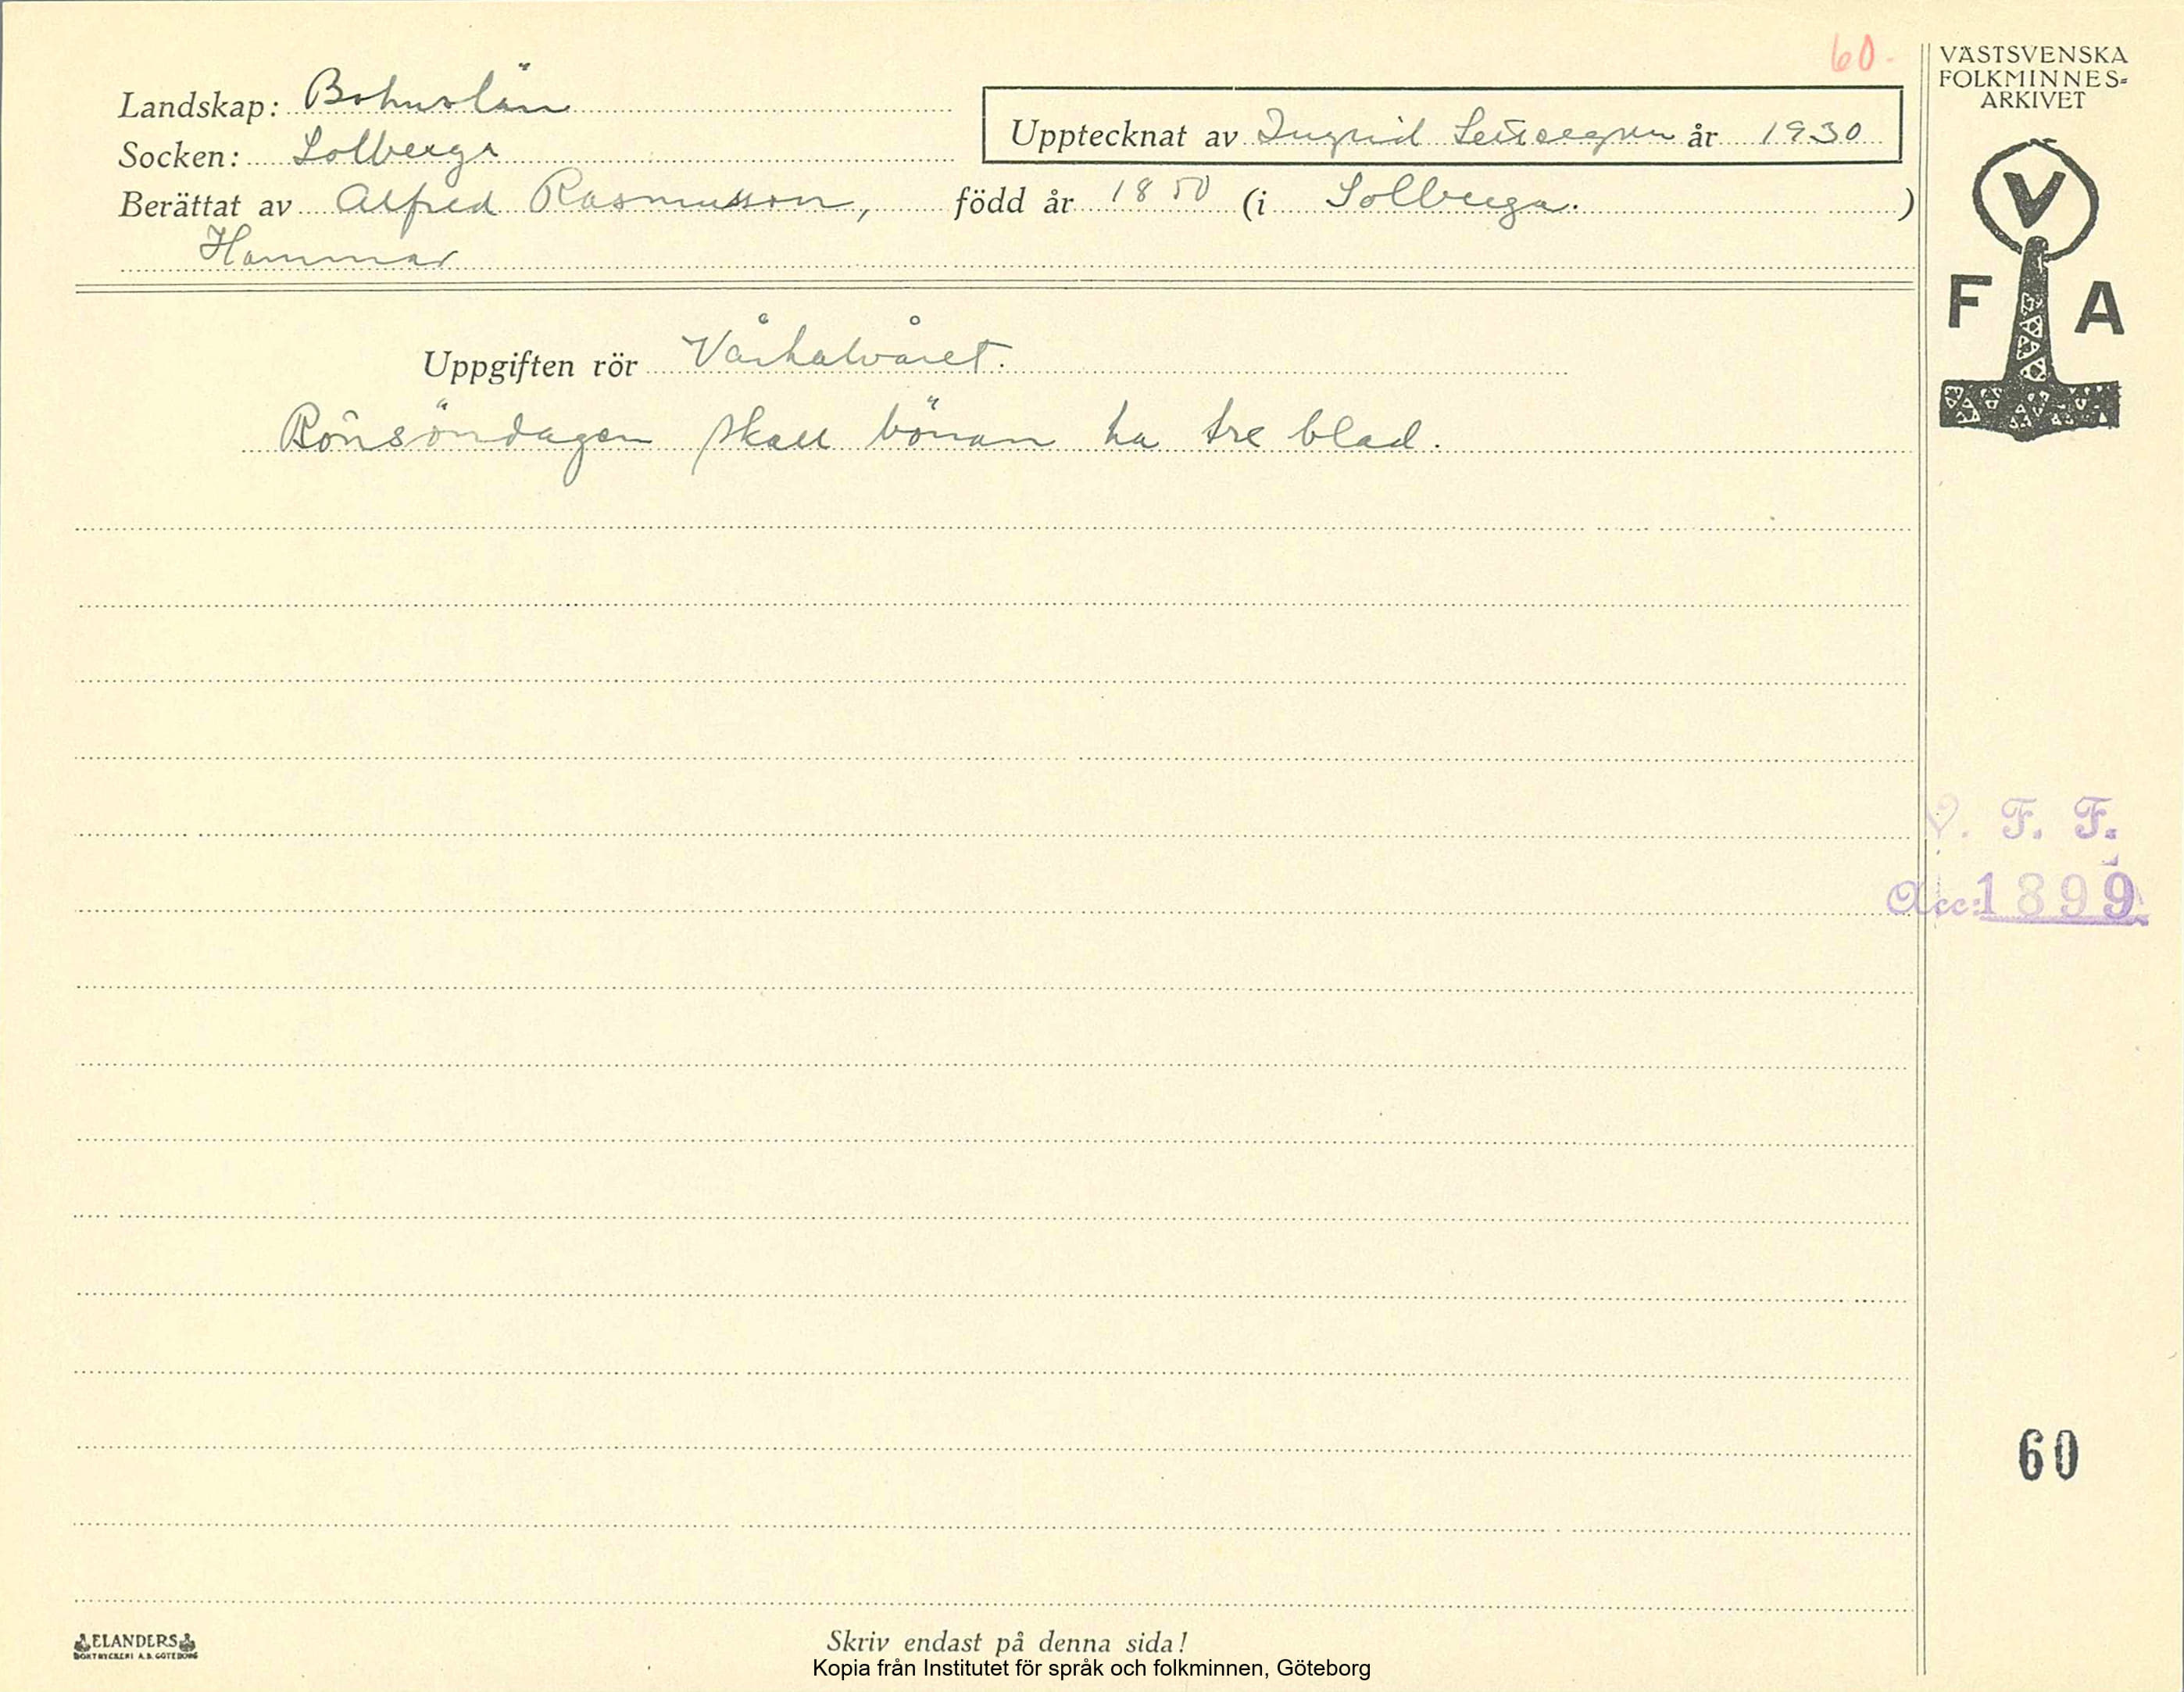 60.
VÄSTSVENSKA
FOLKMINNES=
ARKIVET
Landskap: Bohuslän
Upptecknat av Ingrid år 1930
Socken: Solberga
Berättat av Alfred Rasmusson, född år 1850 (i Solberga. )
Hammar
V
F A
Uppgiften rör Vårhalvåret.
Bönsöndagen skall bönan ha tre blad.
V. F. F.
Acc: 1899
60
ELANDERS
BOKTRYCKERI A.B. GÖTEBORG
Skriv endast på denna sida!
Kopia från Institutet för språk och folkminnen, Göteborg